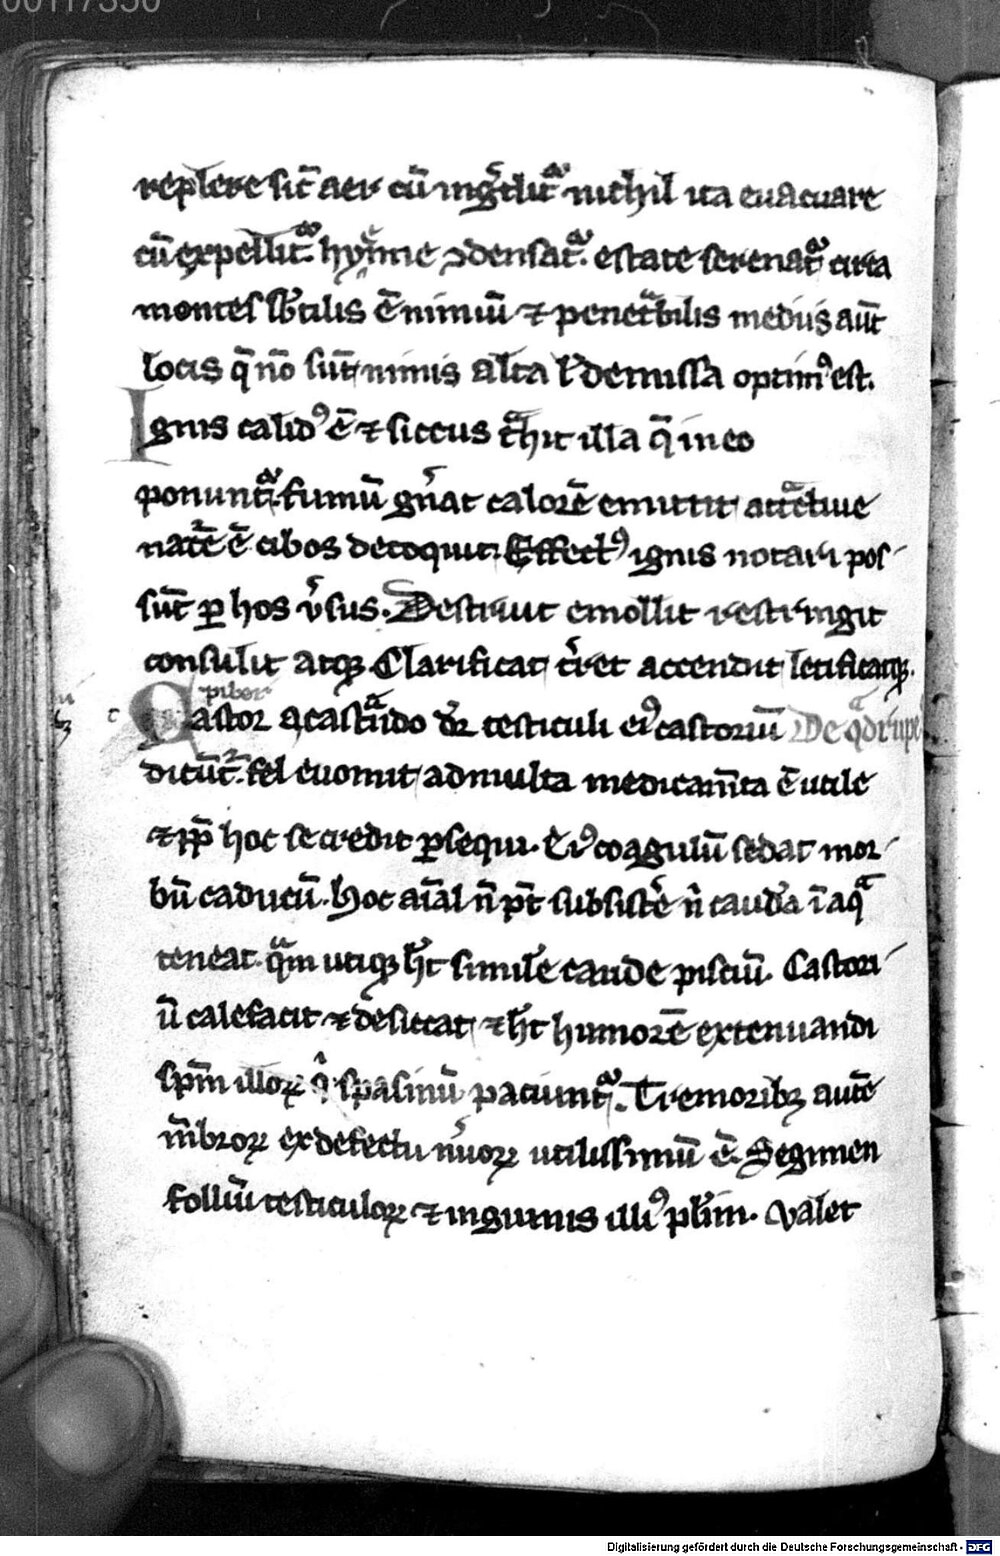 00117350
replere sic̄ aer cū ingͥditͬ nichil ita euacuare
cū expellitͬ. hyeme ↄdensatͬ. estate serenatͬ circa
montes sb̾tilis ē nimiū ⁊ penetͣbilis mediis aūt
locis q̄ nō sūt nimis alta ł demissa optimꝰ est.
Ignis calidꝰ ē ⁊ siccus tͣhit illa q̄ in eo
ponuntͬ. fumū gͥnat calorē emittit attͣctiue
nat̾e ē cibos decoquit. Effectꝰ ignis notari pos
sūt ꝑ hos v̾sus. Destruit emollit restringit
consulit atqꝫ Clarificat t̾ret accendit letificatqꝫ.
piber
Castor a castͣndo dr̄ testiculi eiꝰ castoriū De qͣdrupe
dicūtͬ. fel euomit ad multa medicam̄ta ē utile
⁊ ꝓpt̾ hoc se credit ꝑsequi. Eiꝰ coagulū sedat mor
bū caducū. Hoc aīal n̄ pōt subsist̾e n̄ cauda ī aqͣ
teneat. qͣm utiqꝫ hͣt simile caude pisciū. Castori
ū calefacit ⁊ desiccat ⁊ hͣt humorē extenuandi
spm̄ illoꝝ qͥ spasmū paciuntͬ. Tremoribꝫ autē
mēbroꝝ ex defectu n̾uoꝝ utilissimū ē. Segimen
folliū testiculoꝝ ⁊ inguinis illiꝰ plim̄. Valet
Digitalisierung gefördert durch die Deutsche Forschungsgemeinschaft - DFG